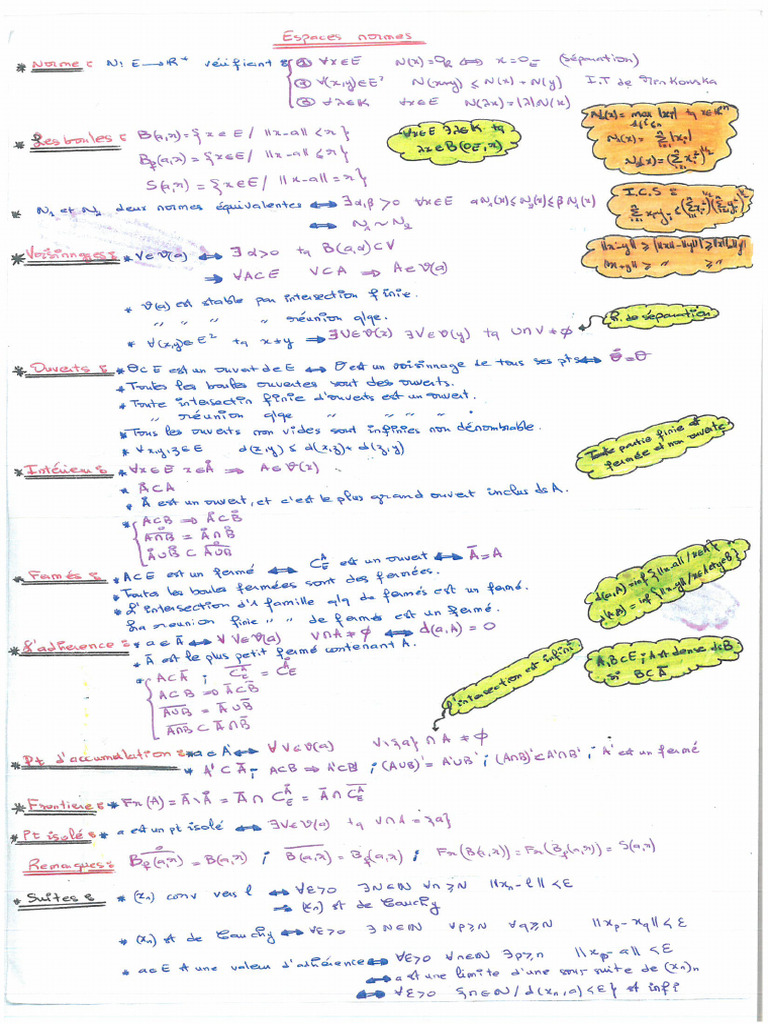 Espaces normés
* Norme : N: E → R⁺ vérifient : ① ∀x∈E N(x)=0_R ⟺ x=0_E (séparation)
② ∀(x,y)∈E² N(x+y) ≤ N(x)+N(y) I.T de Minkowska
③ ∀λ∈K ∀x∈E N(λx)=|λ|N(x)
* Les boules : B(a,r)={x∈E / ||x-a||<r}
B_f(a,r)={x∈E / ||x-a||≤r}
S(a,r)={x∈E / ||x-a||=r}
∀x∈E ∃λ∈K tq
λx∈B(0_E,r)
N_∞(x) = max |x_i| tq x∈K^n
1≤i≤n
N_1(x) = Σ |x_i|
N_2(x)=(Σ x_i²)^{1/2}
* N_1 et N_2 deux normes équivalentes ⟺ ∃α,β>0 ∀x∈E αN_1(x)≤N_2(x)≤βN_1(x)
⟺ N_1 ~ N_2
I.C.S :
Σ x_i y_i ≤ (Σ x_i²)^{1/2} (Σ y_i²)^{1/2}
||x-y|| ≥ | ||x||-||y|| | ≥ ||x||-||y||
||x+y|| ≥ " ≥ "
* Voisinnages : * V∈ϑ(a) ⟺ ∃α>0 tq B(a,α)⊂V
⟹ ∀A⊂E V⊂A ⟹ A∈ϑ(a)
* ϑ(a) est stable par intersection finie.
" " " " réunion qlqe.
* ∀(x,y)∈E² tq x≠y ⟹ ∃U∈ϑ(x) ∃V∈ϑ(y) tq U∩V≠∅
P. de séparation
* Ouverts : * Θ⊂E est un ouvert de E ⟺ Θ est un voisinage de tous ses pts ⟺ Θ̊=Θ
* Toutes les boules ouvertes sont des ouverts.
* Toute intersectin finie d'ouverts est un ouvert.
" réunion qlqe " " " "
* Tous les ouverts non vides sont infinies non dénombrable.
* ∀x,y,z∈E d(x,y) ≤ d(x,z)+d(z,y)
Toute partie finie est
fermée et non ouverte
* Intérieur : * ∀x∈E x∈Å ⟹ A∈ϑ(x)
* Å⊂A
* Å est un ouvert, et c'est le plus grand ouvert inclus ds A.
* A⊂B ⟹ Å⊂B̊
(A∩B)° = Å∩B̊
Å∪B̊ ⊂ (A∪B)°
* Fermés : * A⊂E est un fermé ⟺ C_E^A est un ouvert ⟺ Ā=A
* Toutes les boule fermées sont des fermées.
* L'intersection d'1 famille qlq de fermés est un fermé.
La reunion finie " " de fermés est un fermé.
d(a,A)=inf{||x-a|| / x∈A}
d(A,B)=inf{||x-y|| / x∈A et y∈B}
* L'adhérence : * a∈Ā ⟺ ∀V∈ϑ(a) V∩A≠∅ ⟺ d(a,A)=0
* Ā est le plus petit fermé contenant A.
* A⊂Ā ; C̄_E^A = C_E^Å
A⊂B ⟹ Ā⊂B̄
(A∪B)‾ = Ā∪B̄
(A∩B)‾ ⊂ Ā∩B̄
L'intersection est infini.
A,B⊂E ; A est dense ds B
si B⊂Ā
* Pt d'accumulation : * a∈A' ⟺ ∀V∈ϑ(a) V\{a}∩A≠∅
* A'⊂Ā ; A⊂B ⟹ A'⊂B' ; (A∪B)'=A'∪B' ; (A∩B)'⊂A'∩B' ; A' est un fermé
* Frontiere : * Fr(A)=Ā\Å = Ā∩C_E^Å = Ā∩C̄_E^A
* Pt isolé : * a est un pt isolé ⟺ ∃V∈ϑ(a) tq V∩A={a}
Remarques : B̊_f(a,r)=B(a,r) ; B̄(a,r)=B_f(a,r) ; Fr(B(a,r))=Fr(B_f(a,r))=S(a,r)
* Suites : * (x_n) conv vers l ⟺ ∀ε>0 ∃N∈ℕ ∀n≥N ||x_n-l||<ε
⟹ (x_n) est de Cauchy
* (x_n) est de Cauchy ⟺ ∀ε>0 ∃N∈ℕ ∀p≥N ∀q≥N ||x_p-x_q||<ε
* a∈E est une valeur d'adhérence ⟺ ∀ε>0 ∀n∈ℕ ∃p≥n ||x_p-a||<ε
⟺ a est une limite d'une sous-suite de (x_n)_n
⟺ ∀ε>0 {n∈ℕ / d(x_n,a)<ε} est infi